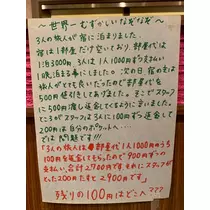 ～世界一むずかしいなぞなぞ～
3人の旅人が宿に泊まりました。
宿は1部屋だけ空いており、部屋代は
1泊3000円。3人は1人1000円ずつ支払い
1晩泊る事にしました。次の日宿の主は
旅人がとても良い だったので部屋代を
500円引きしてあげようと思い、そこでスタッフ
に500円渡し返金してくるように言いました。
ところがスタッフは3人に100円ずつ返金して
200円は自分のポケットへ…
では問題です!!
「3人の旅人は 部屋代1人1000円のうち
100円を返金してもらったので900円ずつの
支払い、合計2700円です。それにスタッフが
とった200円をたすと2900円です」
残りの100円はどこへ???